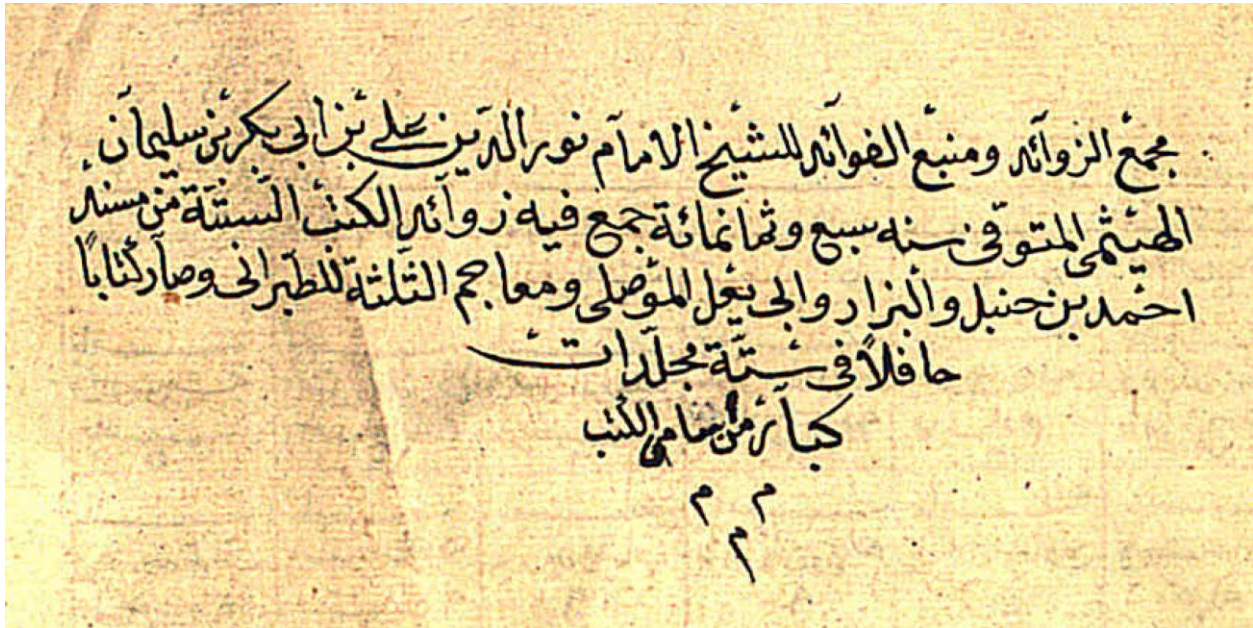 مجمع الزوآئد ومنبع الفوائد للشيخ الامام نور الدين على بن ابى بكر بن سليمان
الهيثمى المتوفى سنه سبع وثمانمائة جمع فيه زوآئد الكتب الستة من مسند
احمد بن حنبل والبزار وابى يعلى الموصلى ومعاجم الثلثة للطبرانى وصار كتاباً
حافلاً فى ستة مجلدات
كبار من الكتب
م م
م